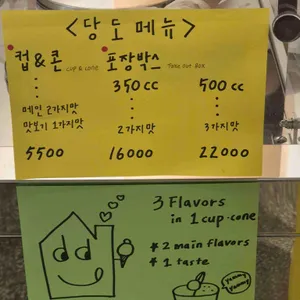 <당도메뉴>
컵&콘 cup & cone
포장박스 Take out Box
350cc 500cc
메인 2가지맛
맛보기 1가지맛
2가지맛 3가지맛
5500 16000 22000
3 Flavors
in 1 cup·cone
* 2 main flavors
* 1 taste
yummy
yummy